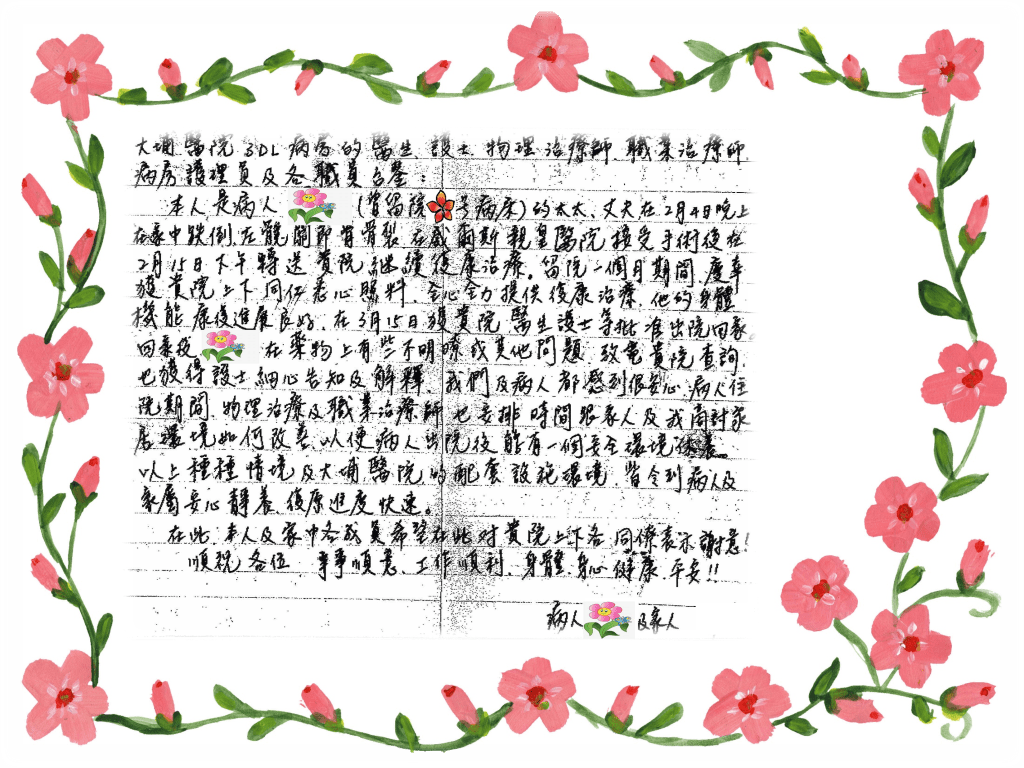 大埔醫院 3DL 病房的醫生、護士、物理治療師、職業治療師、
病房護理員及各職員台鑒：
本人是病人 (曾留院 号病床) 的太太、丈夫在2月4日晚上
在家中跌倒、左髖關節骨骨裂、在威爾斯親皇醫院接受手術後在
2月15日下午轉送貴院継續復康治療。留院一個月期間、慶幸
獲貴院上下同仁悉心照料、全心全力提供復康治療、他的身體
機能康復進展良好、在3月15日獲貴院醫生護士等批准出院回家
回家後 在藥物上有些不明瞭或其他問題、致電貴院查詢、
也獲得護士細心告知及解釋、我們及病人都感到很安心、病人住
院期間、物理治療及職業治療師也安排時間跟家人及我商討家
居環境如何改善、以便病人出院後能有一個安全環境休養。
以上種種情境及大埔醫院的配套設施環境、皆令到病人及
家屬安心靜養、復原進度快速。
在此、本人及家中各成員希望在此对貴院上下各同僚表示謝意！
順祝各位 事事順意、工作順利、身體、身心健康、平安！！
病人 及家人